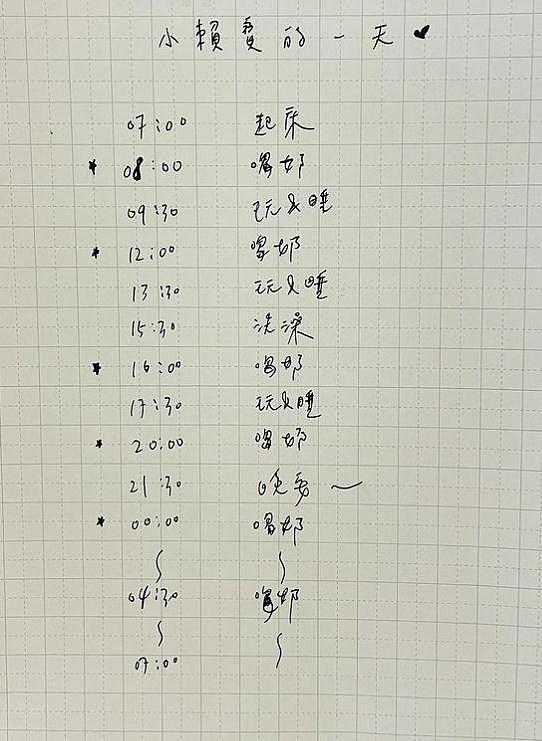 小賴寶的一天♥
07:00 起床
★ 08:00 喝奶
09:30 玩&睡
★ 12:00 喝奶
13:30 玩&睡
15:30 洗澡
★ 16:00 喝奶
17:30 玩&睡
★ 20:00 喝奶
21:30 晚安～
★ 00:00 喝奶
～ ～
04:30 喝奶
～ ～
07:00